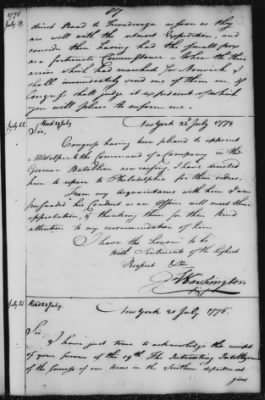 1776
July 19.
87
direct Road to Ticonderoga as soon as they
are well with the utmost Expedition, and
consider their having had the Small pox
as a fortunate Circumstance — When the three
arrive which has marched for Norwich I
shall immediately send one of them on if
Congress shall judge it expedient of which
you will please to inform me.
July 22.
Read 23 July.
New York 22d July 1776
Sir,
Congress having been pleased to appoint
Mr Wilper to the Command of a Company in the
German Battallion now raising, I have directed
him to repair to Philadelphia for their orders.
From my acquaintance with him I am
persuaded his Conduct as an Officer will meet their
approbation, & thanking them for their kind
attention to my recommendation of him
I have the Honor to be
With Sentiments of the highest
Respect
GWashington
July 21
Read 22 July.
New York 21 July 1776.
Sir,
I have just time to acknowledge the receipt
of your favour of the 19th The Interesting Intelligence
of the Success of our Arms in the Southern department
gives